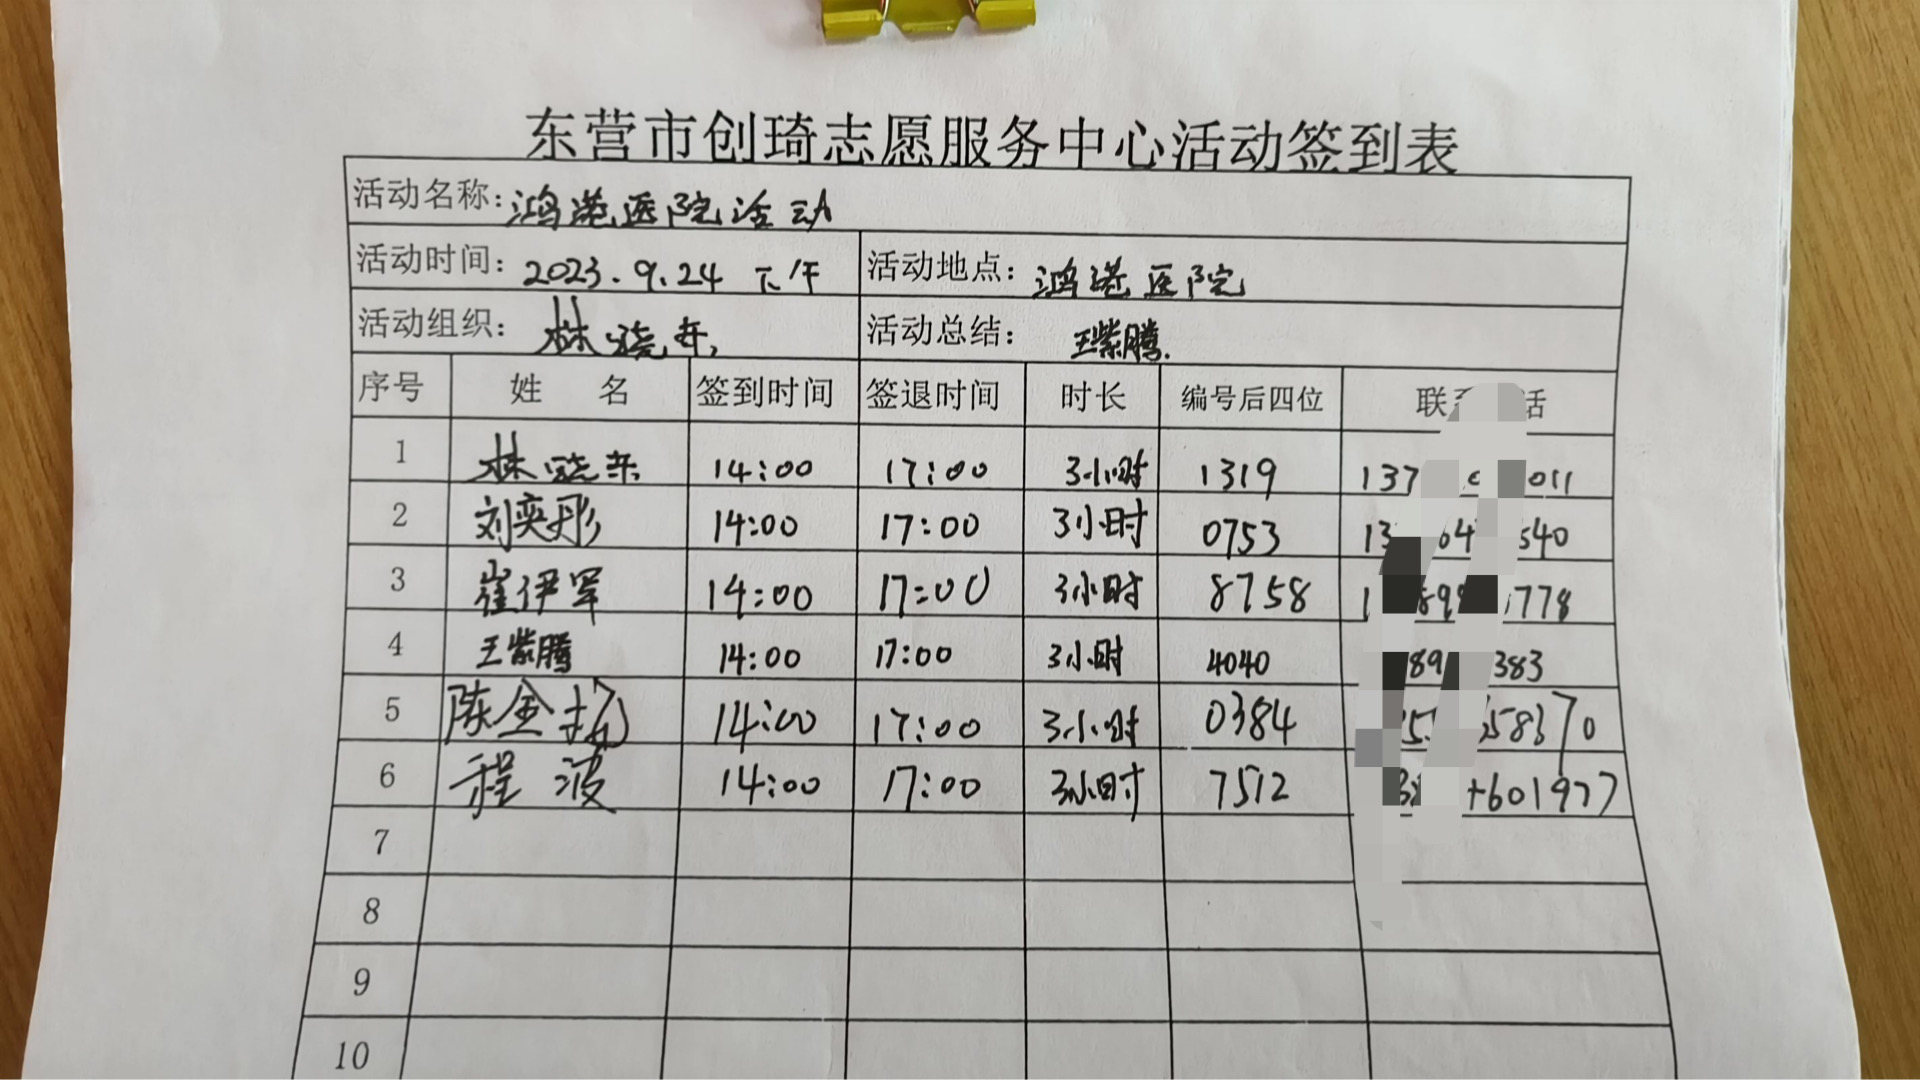 东营市创琦志愿服务中心活动签到表
活动名称:鸿港医院活动
活动时间:2023.9.24 下午 活动地点:鸿港医院
活动组织:林晓东 活动总结:王紫腾
序号 姓 名 签到时间 签退时间 时长 编号后四位 联 话
1 林晓东 14:00 17:00 3小时 1319 137 011
2 刘奕彤 14:00 17:00 3小时 0753 13 64 540
3 崔伊军 14:00 17:00 3小时 8758 1 89 778
4 王紫腾 14:00 17:00 3小时 4040 89 383
5 陈金 14:00 17:00 3小时 0384 5 58370
6 程波 14:00 17:00 3小时 7512 601977
7
8
9
10